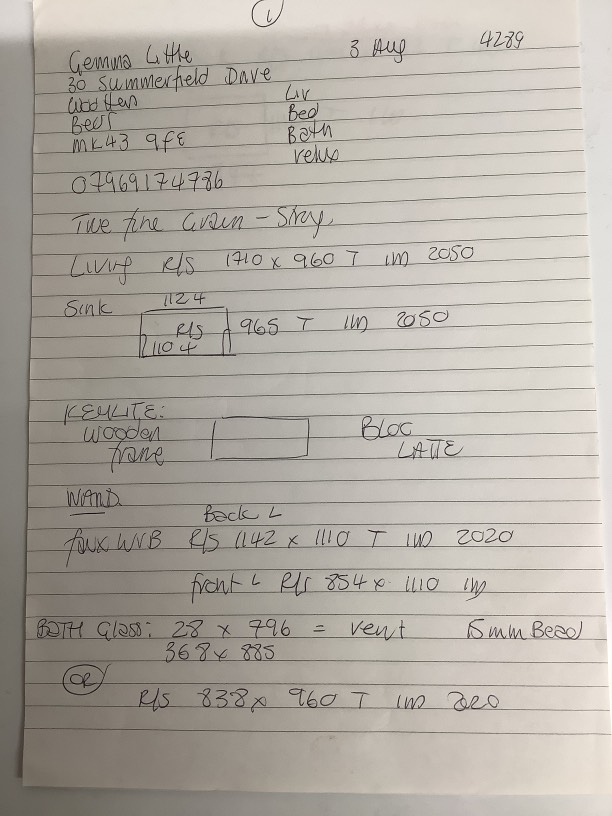 1
Gemma Little 3 Aug 4289
30 Summerfield Drive
Wootten Liv
Beds Bed
MK43 9FE Bath
velux
07969174786
True fine Grain - Stray
Living R/S 1710 x 960 T IM 2050
Sink 1124
R/S 965 T IM 2050
1104
KEYLITE:
wooden BLOC
frame LATTE
WAND
Back L
faux WVB R/S 1142 x 1110 T IM 2020
front L R/S 854 x 1110 IM
BOTH Glass: 28 x 796 = vent 15mm Bead
368 x 885
OR
R/S 838 x 960 T IM 2020